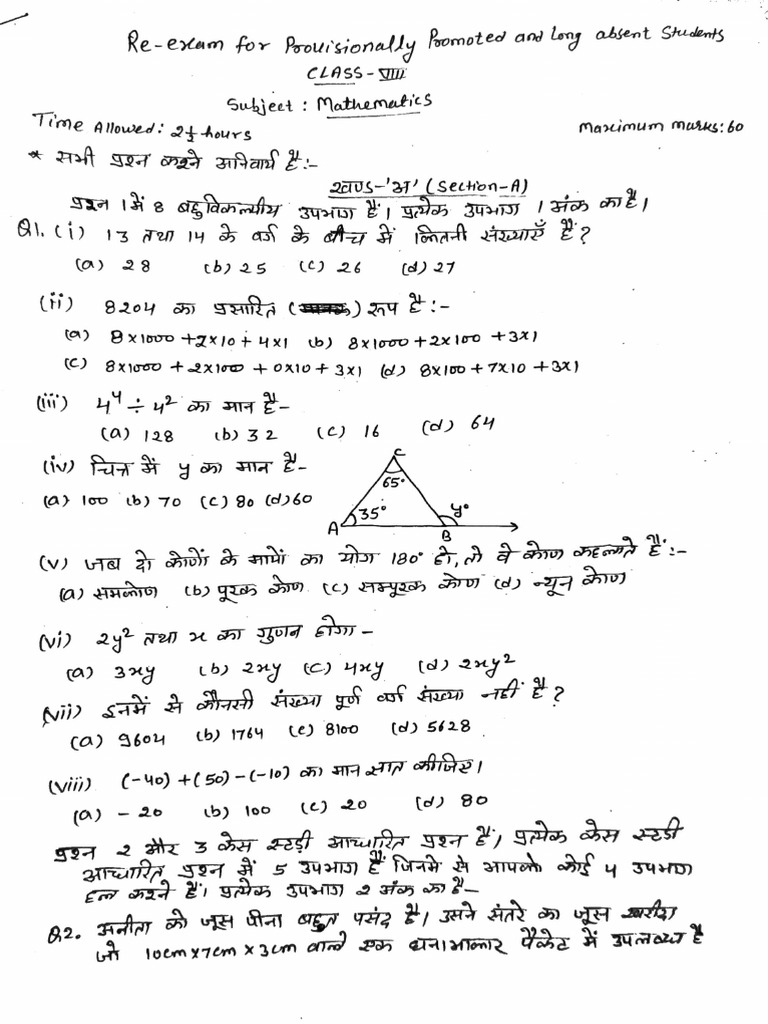 Re-exam for Provisionally Promoted and Long absent Students
CLASS-VIII
Subject: Mathematics
Time Allowed: 2½ hours
Maximum marks: 60
* सभी प्रश्न करने अनिवार्य है:-
खण्ड-'अ' (Section-A)
प्रश्न 1 में 8 बहुविकल्पीय उपभाग हैं। प्रत्येक उपभाग 1 अंक का है।
Q1. (i) 13 तथा 14 के वर्ग के बीच में कितनी संख्याएँ हैं?
(a) 28 (b) 25 (c) 26 (d) 27
(ii) 8204 का प्रसारित रूप है:-
(a) 8x1000+2x10+4x1 (b) 8x1000+2x100+3x1
(c) 8x1000+2x100+0x10+3x1 (d) 8x100+7x10+3x1
(iii) 4⁴÷4² का मान है-
(a) 128 (b) 32 (c) 16 (d) 64
(iv) चित्र में y का मान है-
(a) 100 (b) 70 (c) 80 (d) 60
C
65°
35°
y°
A
B
(v) जब दो कोणों के मापों का योग 180° हो, तो वे कोण कहलाते हैं:-
(a) समकोण (b) पूरक कोण (c) सम्पूरक कोण (d) न्यून कोण
(vi) 2y² तथा x का गुणन होगा-
(a) 3xy (b) 2xy (c) 4xy (d) 2xy²
(vii) इनमें से कौनसी संख्या पूर्ण वर्ग संख्या नहीं है?
(a) 9604 (b) 1764 (c) 8100 (d) 5628
(viii) (-40)+(50)-(-10) का मान ज्ञात कीजिए।
(a) -20 (b) 100 (c) 20 (d) 80
प्रश्न 2 और 3 केस स्टडी आधारित प्रश्न हैं। प्रत्येक केस स्टडी
आधारित प्रश्न में 5 उपभाग हैं जिनमे से आपको कोई 4 उपभाग
हल करने हैं। प्रत्येक उपभाग 2 अंक का है-
Q2. अनीता को जूस पीना बहुत पसंद है। उसने संतरे का जूस खरीदा
जो 10cm x 7cm x 3cm वाले एक घनाभाकार पैकेट में उपलब्ध है